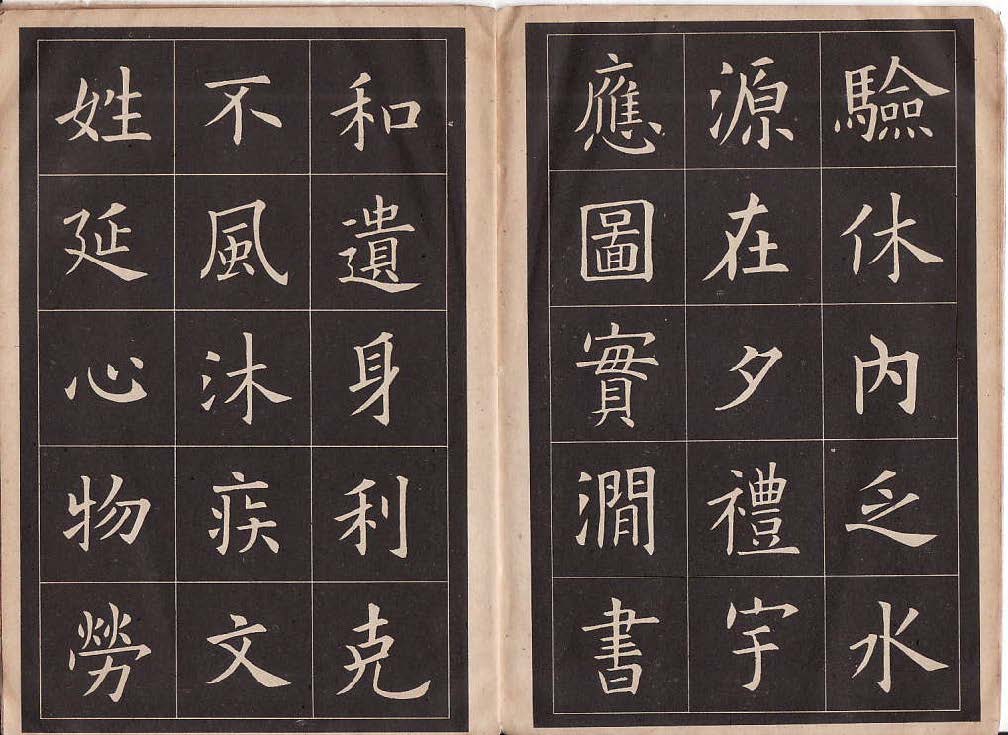 驗休內乏水
源在夕禮宇
應圖實澗書
和遺身利克
不風沐疾文
姓延心物勞